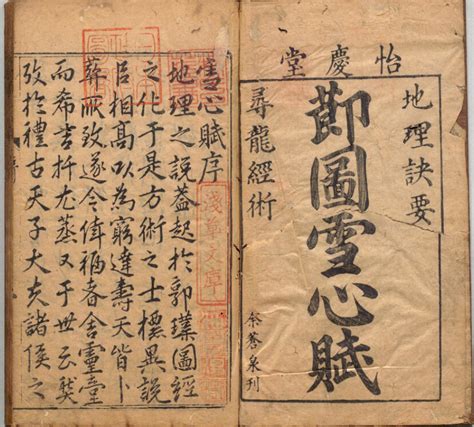 怡慶堂
地理訣要
莭圖雪心賦
尋龍經術
余蒼泉刊
雪心賦序
地理之說蓋起於郭璞圖經
之化于是方術之士標異說
呂相髙以為窮達壽夭皆卜
葬所致遂令福舍靈臺
而希吉又于世云
攷於禮古天子大夫諸侯之
淺草文庫